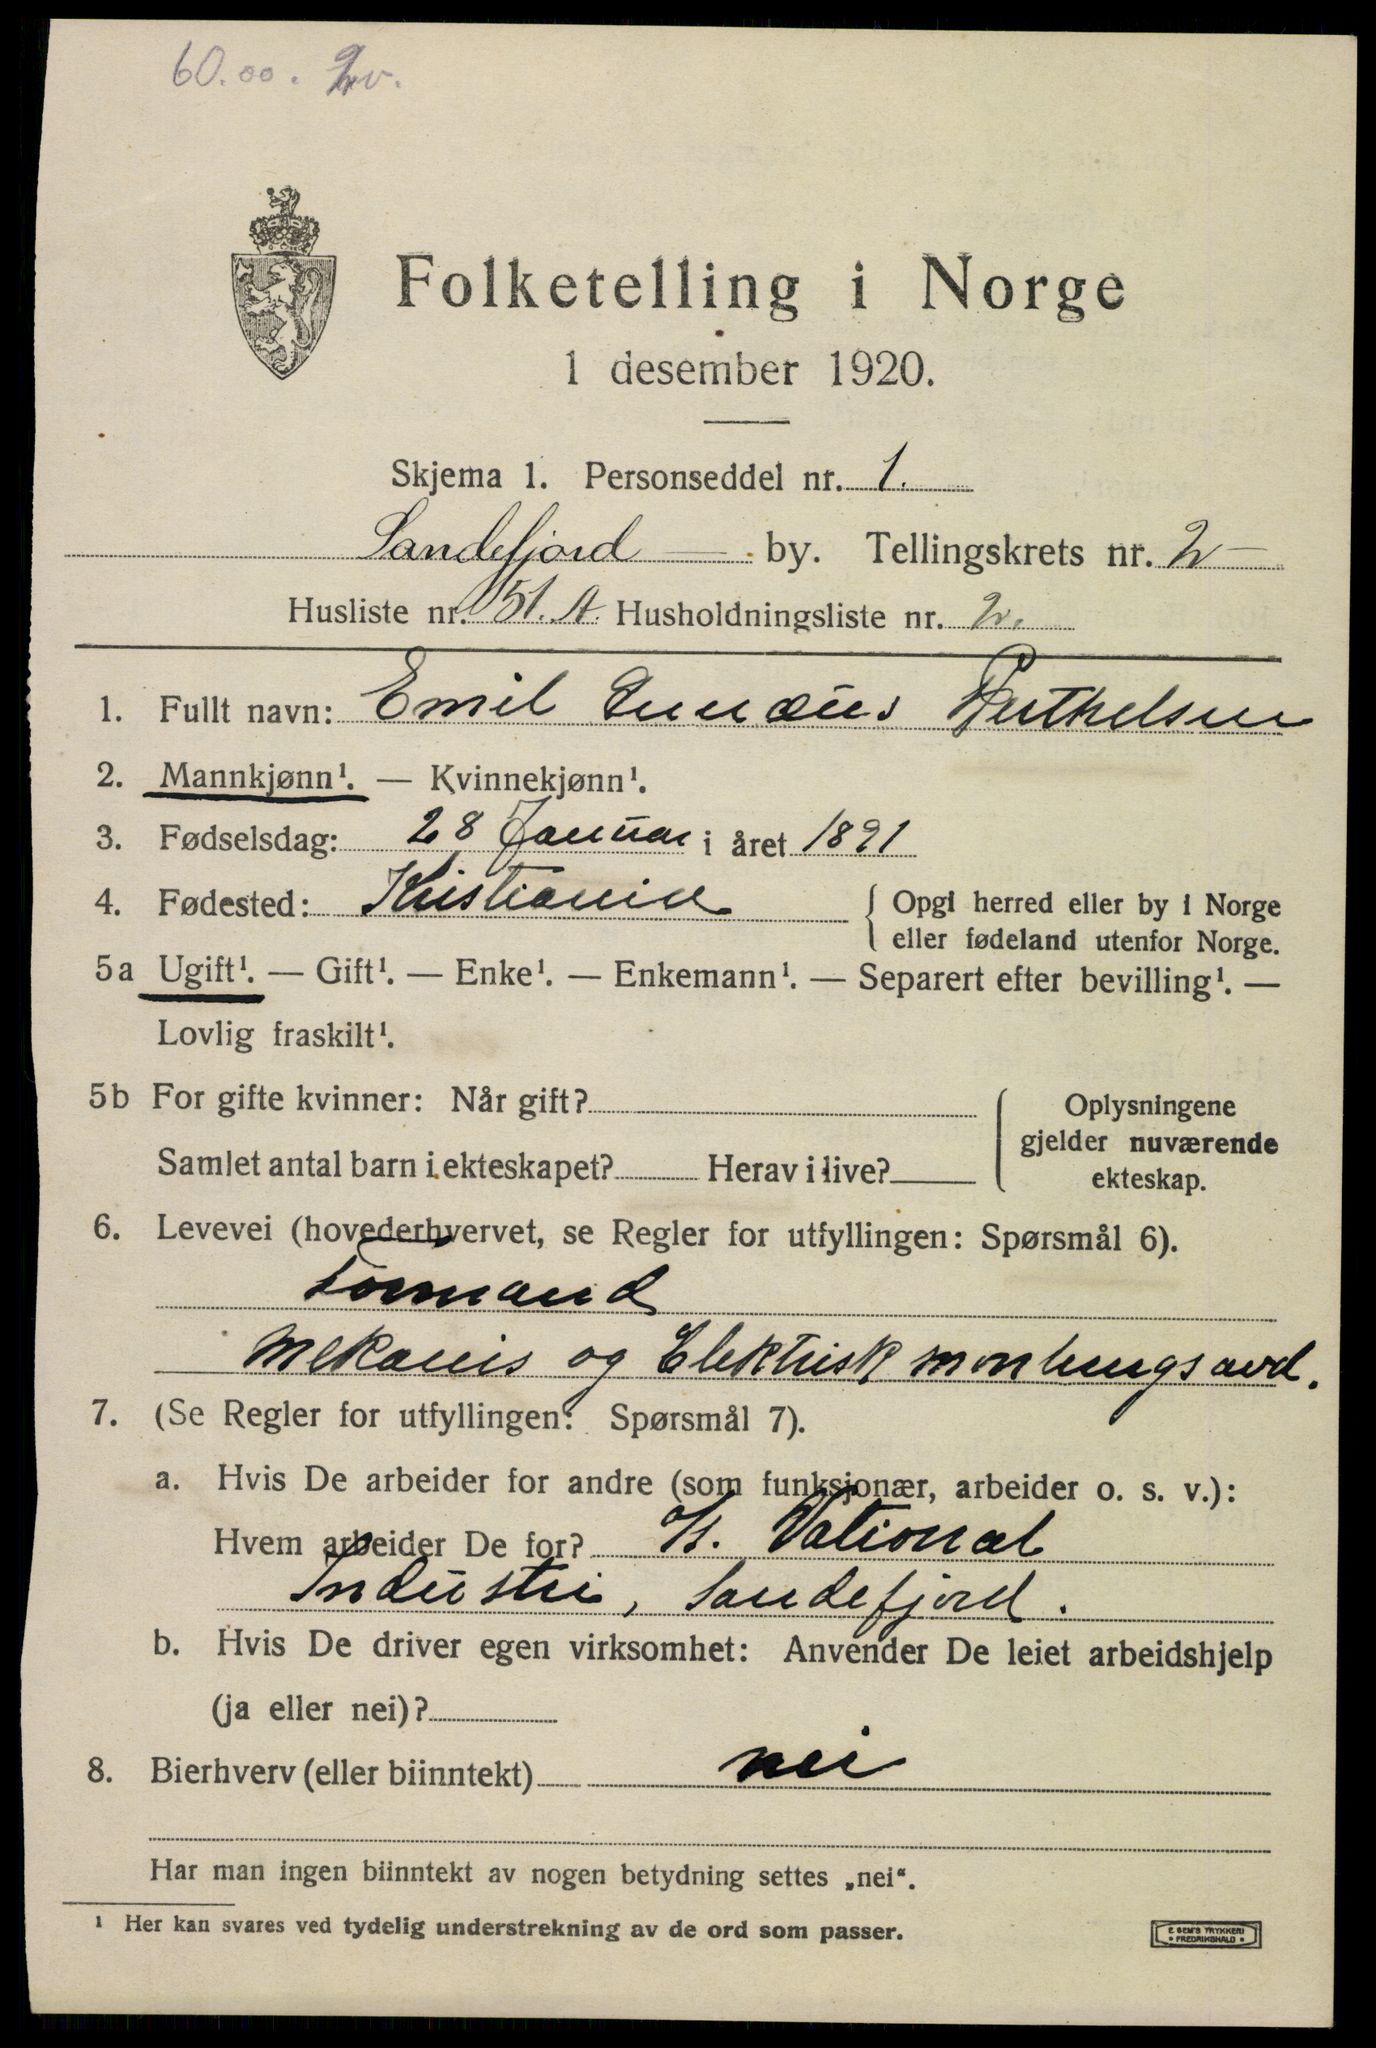 60.00. 2v.
Folketelling i Norge
1 desember 1920.
Skjema 1. Personseddel nr. 1.
Sandefjord — by. Tellingskrets nr. 2 —
Husliste nr. 51. A. Husholdningsliste nr. 2.
1. Fullt navn: Emil Berthelsen
2. Mannkjønn¹. — Kvinnekjønn¹.
3. Fødselsdag: 28 Januar i året 1891
4. Fødested: Kristiania { Opgi herred eller by i Norge
eller fødeland utenfor Norge.
5a Ugift¹. — Gift¹. — Enke¹. — Enkemann¹. — Separert efter bevilling¹. —
Lovlig fraskilt¹.
5b For gifte kvinner: Når gift? { Oplysningene
gjelder nuværende
Samlet antal barn i ekteskapet? Herav i live?
ekteskap.
6. Levevei (hovederhvervet, se Regler for utfyllingen: Spørsmål 6).
Formand
Mekanis og Elektrisk montungs avd.
7. (Se Regler for utfyllingen: Spørsmål 7).
a. Hvis De arbeider for andre (som funksjonær, arbeider o. s. v.):
Hvem arbeider De for? National
Industri, Sandefjord.
b. Hvis De driver egen virksomhet: Anvender De leiet arbeidshjelp
(ja eller nei)?
8. Bierhverv (eller biinntekt) nei
Har man ingen biinntekt av nogen betydning settes „nei“.
¹ Her kan svares ved tydelig understrekning av de ord som passer.
E SEM'S TRYKKERI
• FREDRIKSHALD •